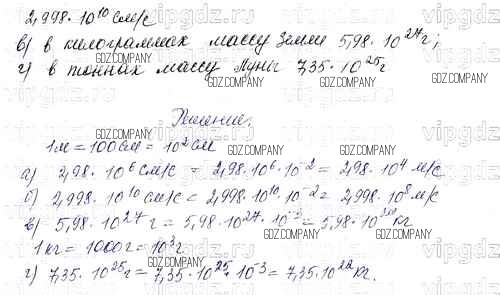 2,998 · 10¹⁰ см/с
в) в килограммах массу Земли 5,98 · 10²⁷ г;
г) в тоннах массу Луны 7,35 · 10²⁵ г
Решение.
1м = 100см = 10² см
а) 2,98 · 10⁶ см/с = 2,98 · 10⁶ · 10⁻² = 2,98 · 10⁴ м/с
б) 2,998 · 10¹⁰ см/с = 2,998 · 10¹⁰ · 10⁻² = 2,998 · 10⁸ м/с
в) 5,98 · 10²⁷ г = 5,98 · 10²⁷ · 10⁻³ = 5,98 · 10 кг
1 кг = 1000 г = 10³ г
г) 7,35 · 10²⁵ г = 7,35 · 10²⁵ · 10⁻³ = 7,35 · 10²² кг.